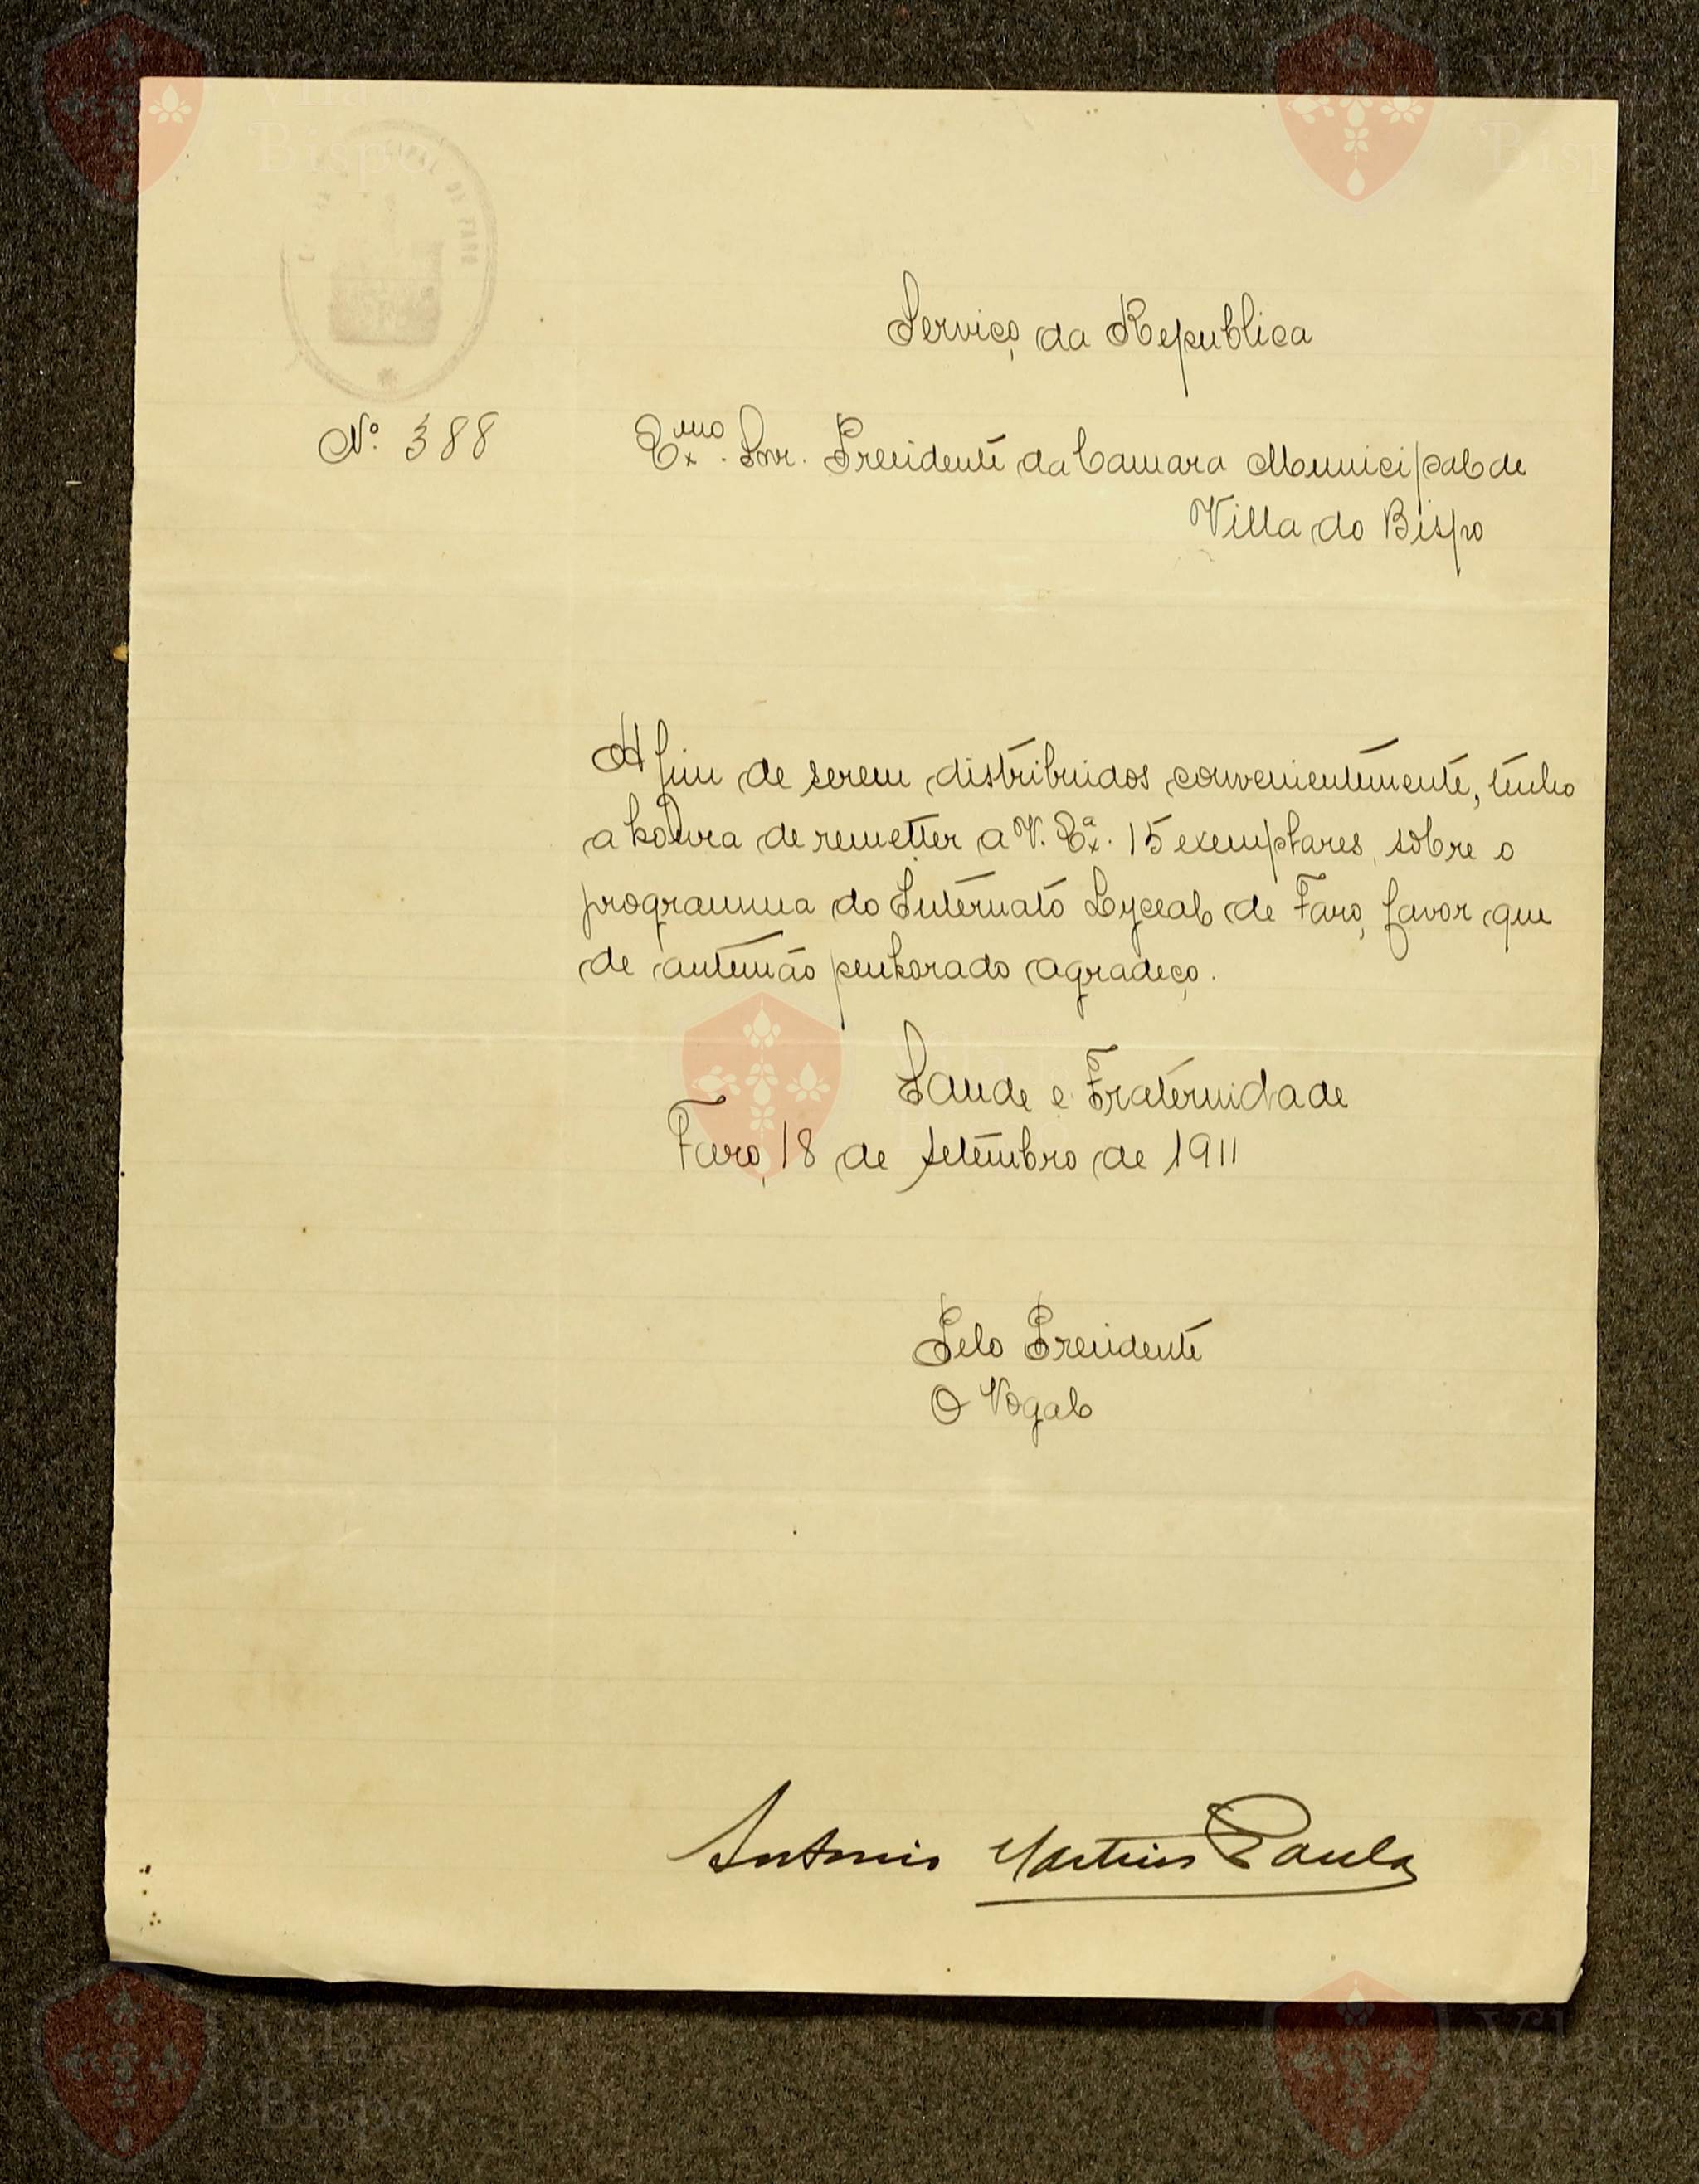 CAMARA MUNICIPAL DE FARO
Serviço da Republica
Nº 388
Exmo. Snr. Presidente da Camara Municipal de
Villa do Bispo
A fim de serem distribuidos convenientemente, tenho
a honra de remetter a V. Exª. 15 exemplares, sobre o
programma do Internato Lyceal de Faro, favor que
de antemão penhorado agradeço.
Saude e Fraternidade
Faro, 18 de setembro de 1911
Pelo Presidente
O Vogal
Antonio Martins Paula
Vila do
Bispo
Vila do
Bispo
Vila do
Bispo
Vila do
Bispo